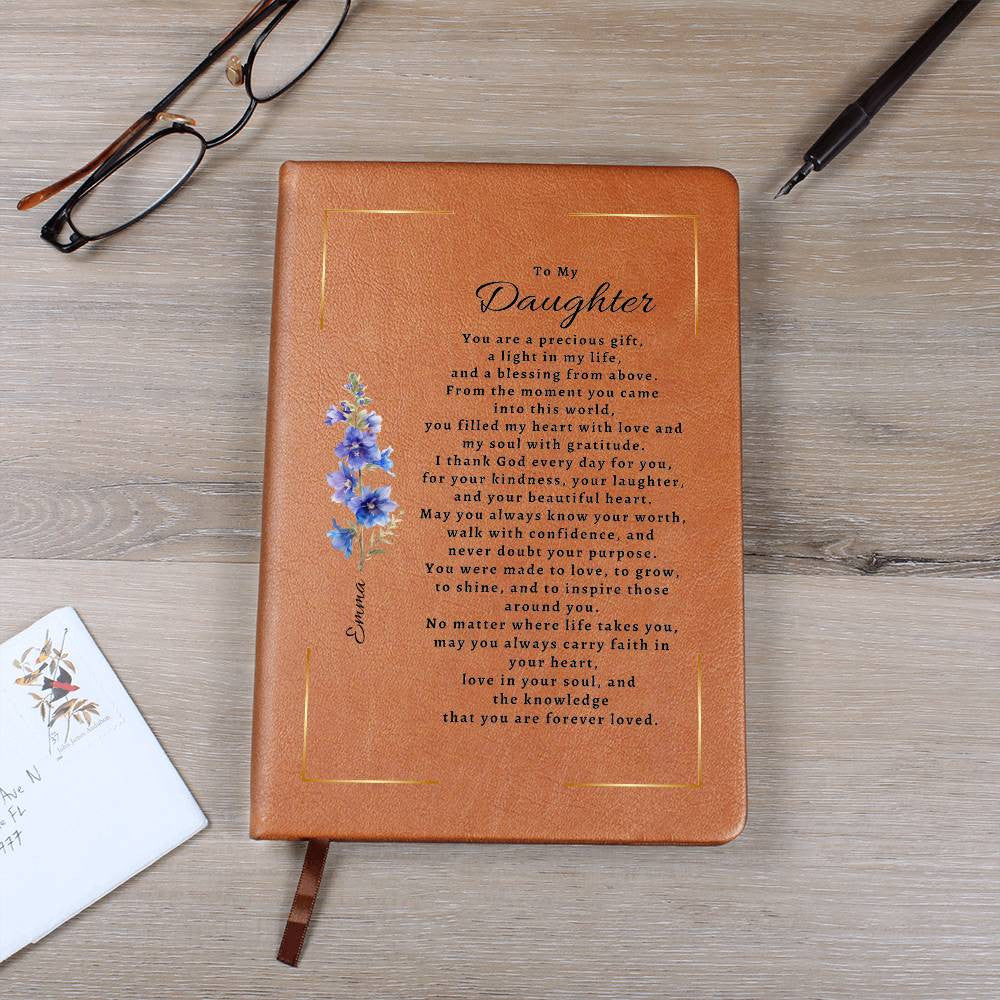 To My
Daughter
You are a precious gift,
a light in my life,
and a blessing from above.
From the moment you came
into this world,
you filled my heart with love and
my soul with gratitude.
I thank God every day for you,
for your kindness, your laughter,
and your beautiful heart.
May you always know your worth,
walk with confidence, and
never doubt your purpose.
You were made to love, to grow,
to shine, and to inspire those
around you.
No matter where life takes you,
may you always carry faith in
your heart,
love in your soul, and
the knowledge
that you are forever loved.
Emma
John James Audubon
Ave N
FL
977